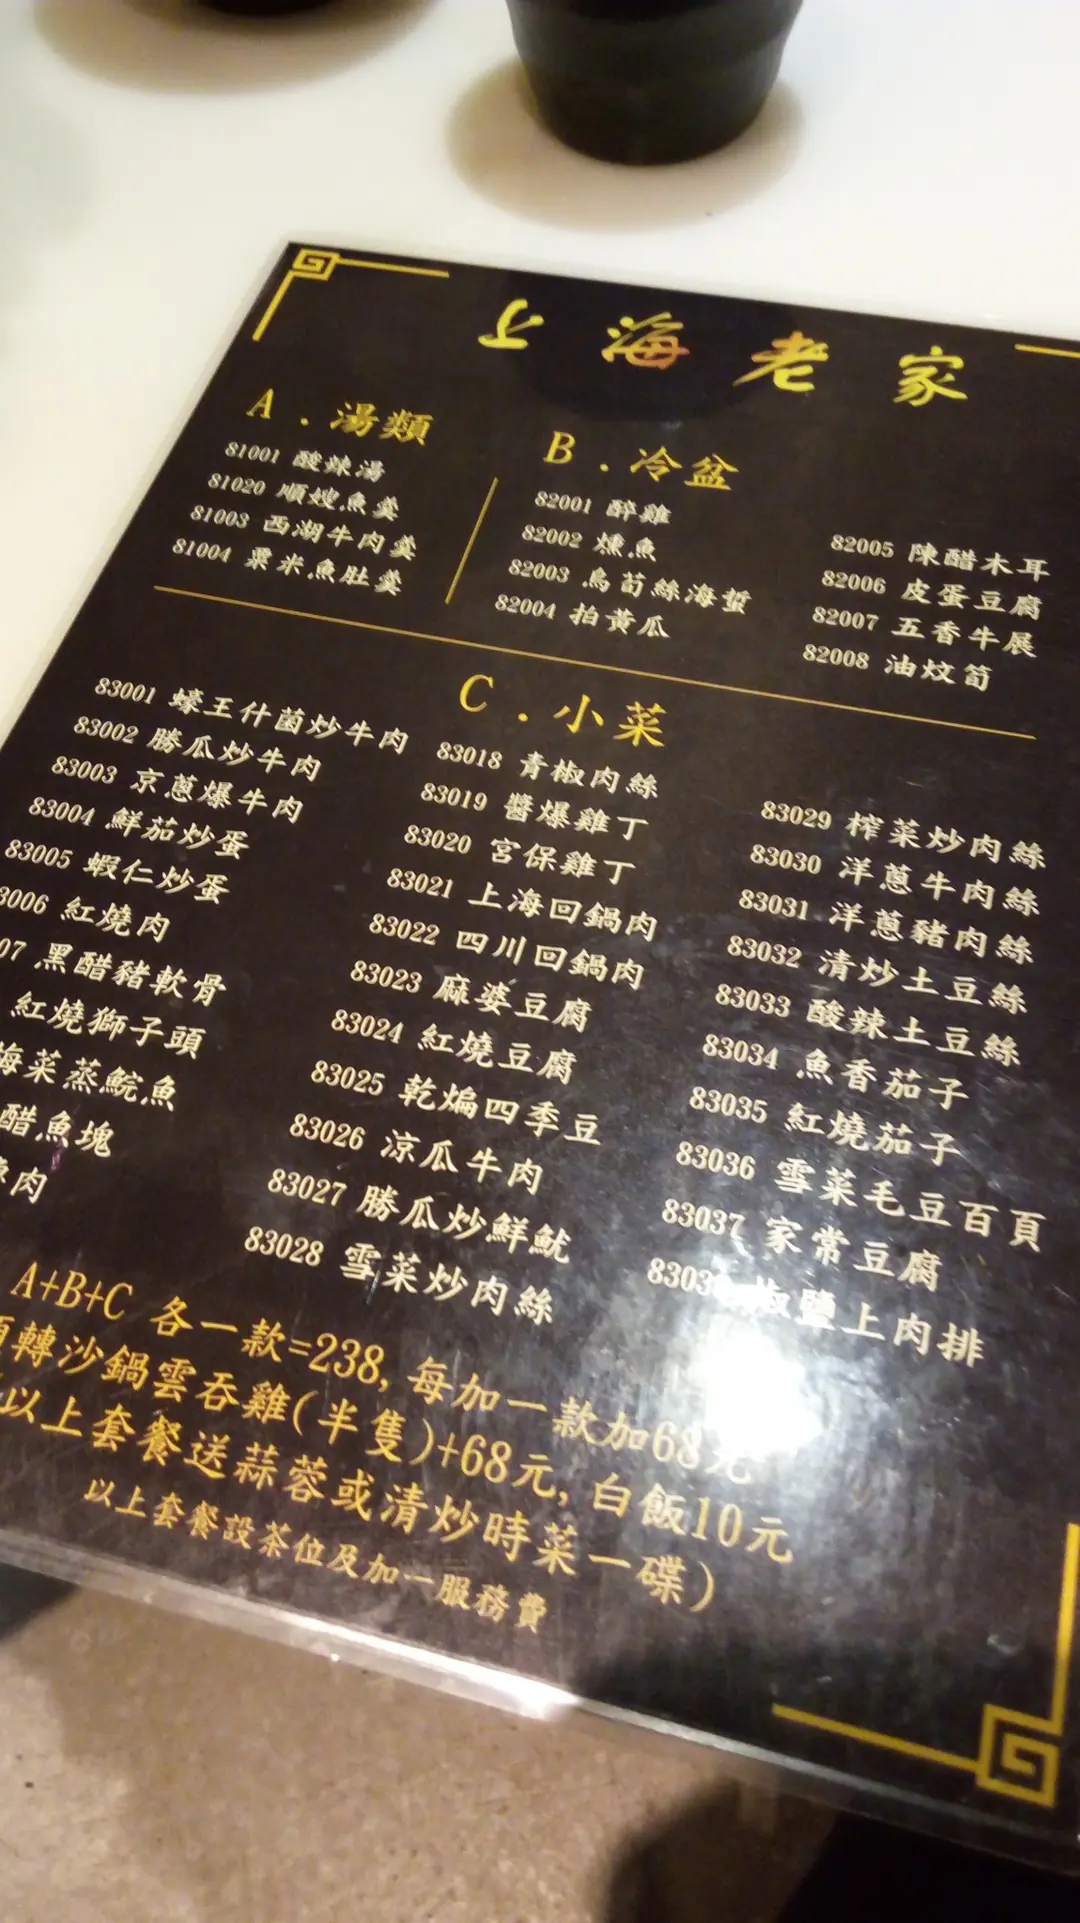 上海老家
A．湯類
81001 酸辣湯
81020 順嫂魚羹
81003 西湖牛肉羹
81004 粟米魚肚羹
B．冷盆
82001 醉雞
82002 燻魚
82003 萵荀絲海蜇
82004 拍黃瓜
82005 陳醋木耳
82006 皮蛋豆腐
82007 五香牛展
82008 油炆筍
C．小菜
83001 蠔王什菌炒牛肉
83002 勝瓜炒牛肉
83003 京蔥爆牛肉
83004 鮮茄炒蛋
83005 蝦仁炒蛋
3006 紅燒肉
07 黑醋豬軟骨
紅燒獅子頭
海菜蒸鯇魚
醋魚塊
肉
83018 青椒肉絲
83019 醬爆雞丁
83020 宮保雞丁
83021 上海回鍋肉
83022 四川回鍋肉
83023 麻婆豆腐
83024 紅燒豆腐
83025 乾煸四季豆
83026 涼瓜牛肉
83027 勝瓜炒鮮魷
83028 雪菜炒肉絲
83029 榨菜炒肉絲
83030 洋蔥牛肉絲
83031 洋蔥豬肉絲
83032 清炒土豆絲
83033 酸辣土豆絲
83034 魚香茄子
83035 紅燒茄子
83036 雪菜毛豆百頁
83037 家常豆腐
8303 椒鹽上肉排
A+B+C 各一款=238, 每加一款加68元
轉沙鍋雲吞雞(半隻)+68元, 白飯10元
以上套餐送蒜蓉或清炒時菜一碟)
以上套餐設茶位及加一服務費